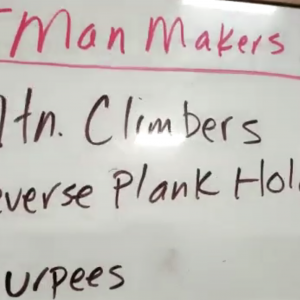 Man Makers
Mtn. Climbers
everse Plank Hol
urpees